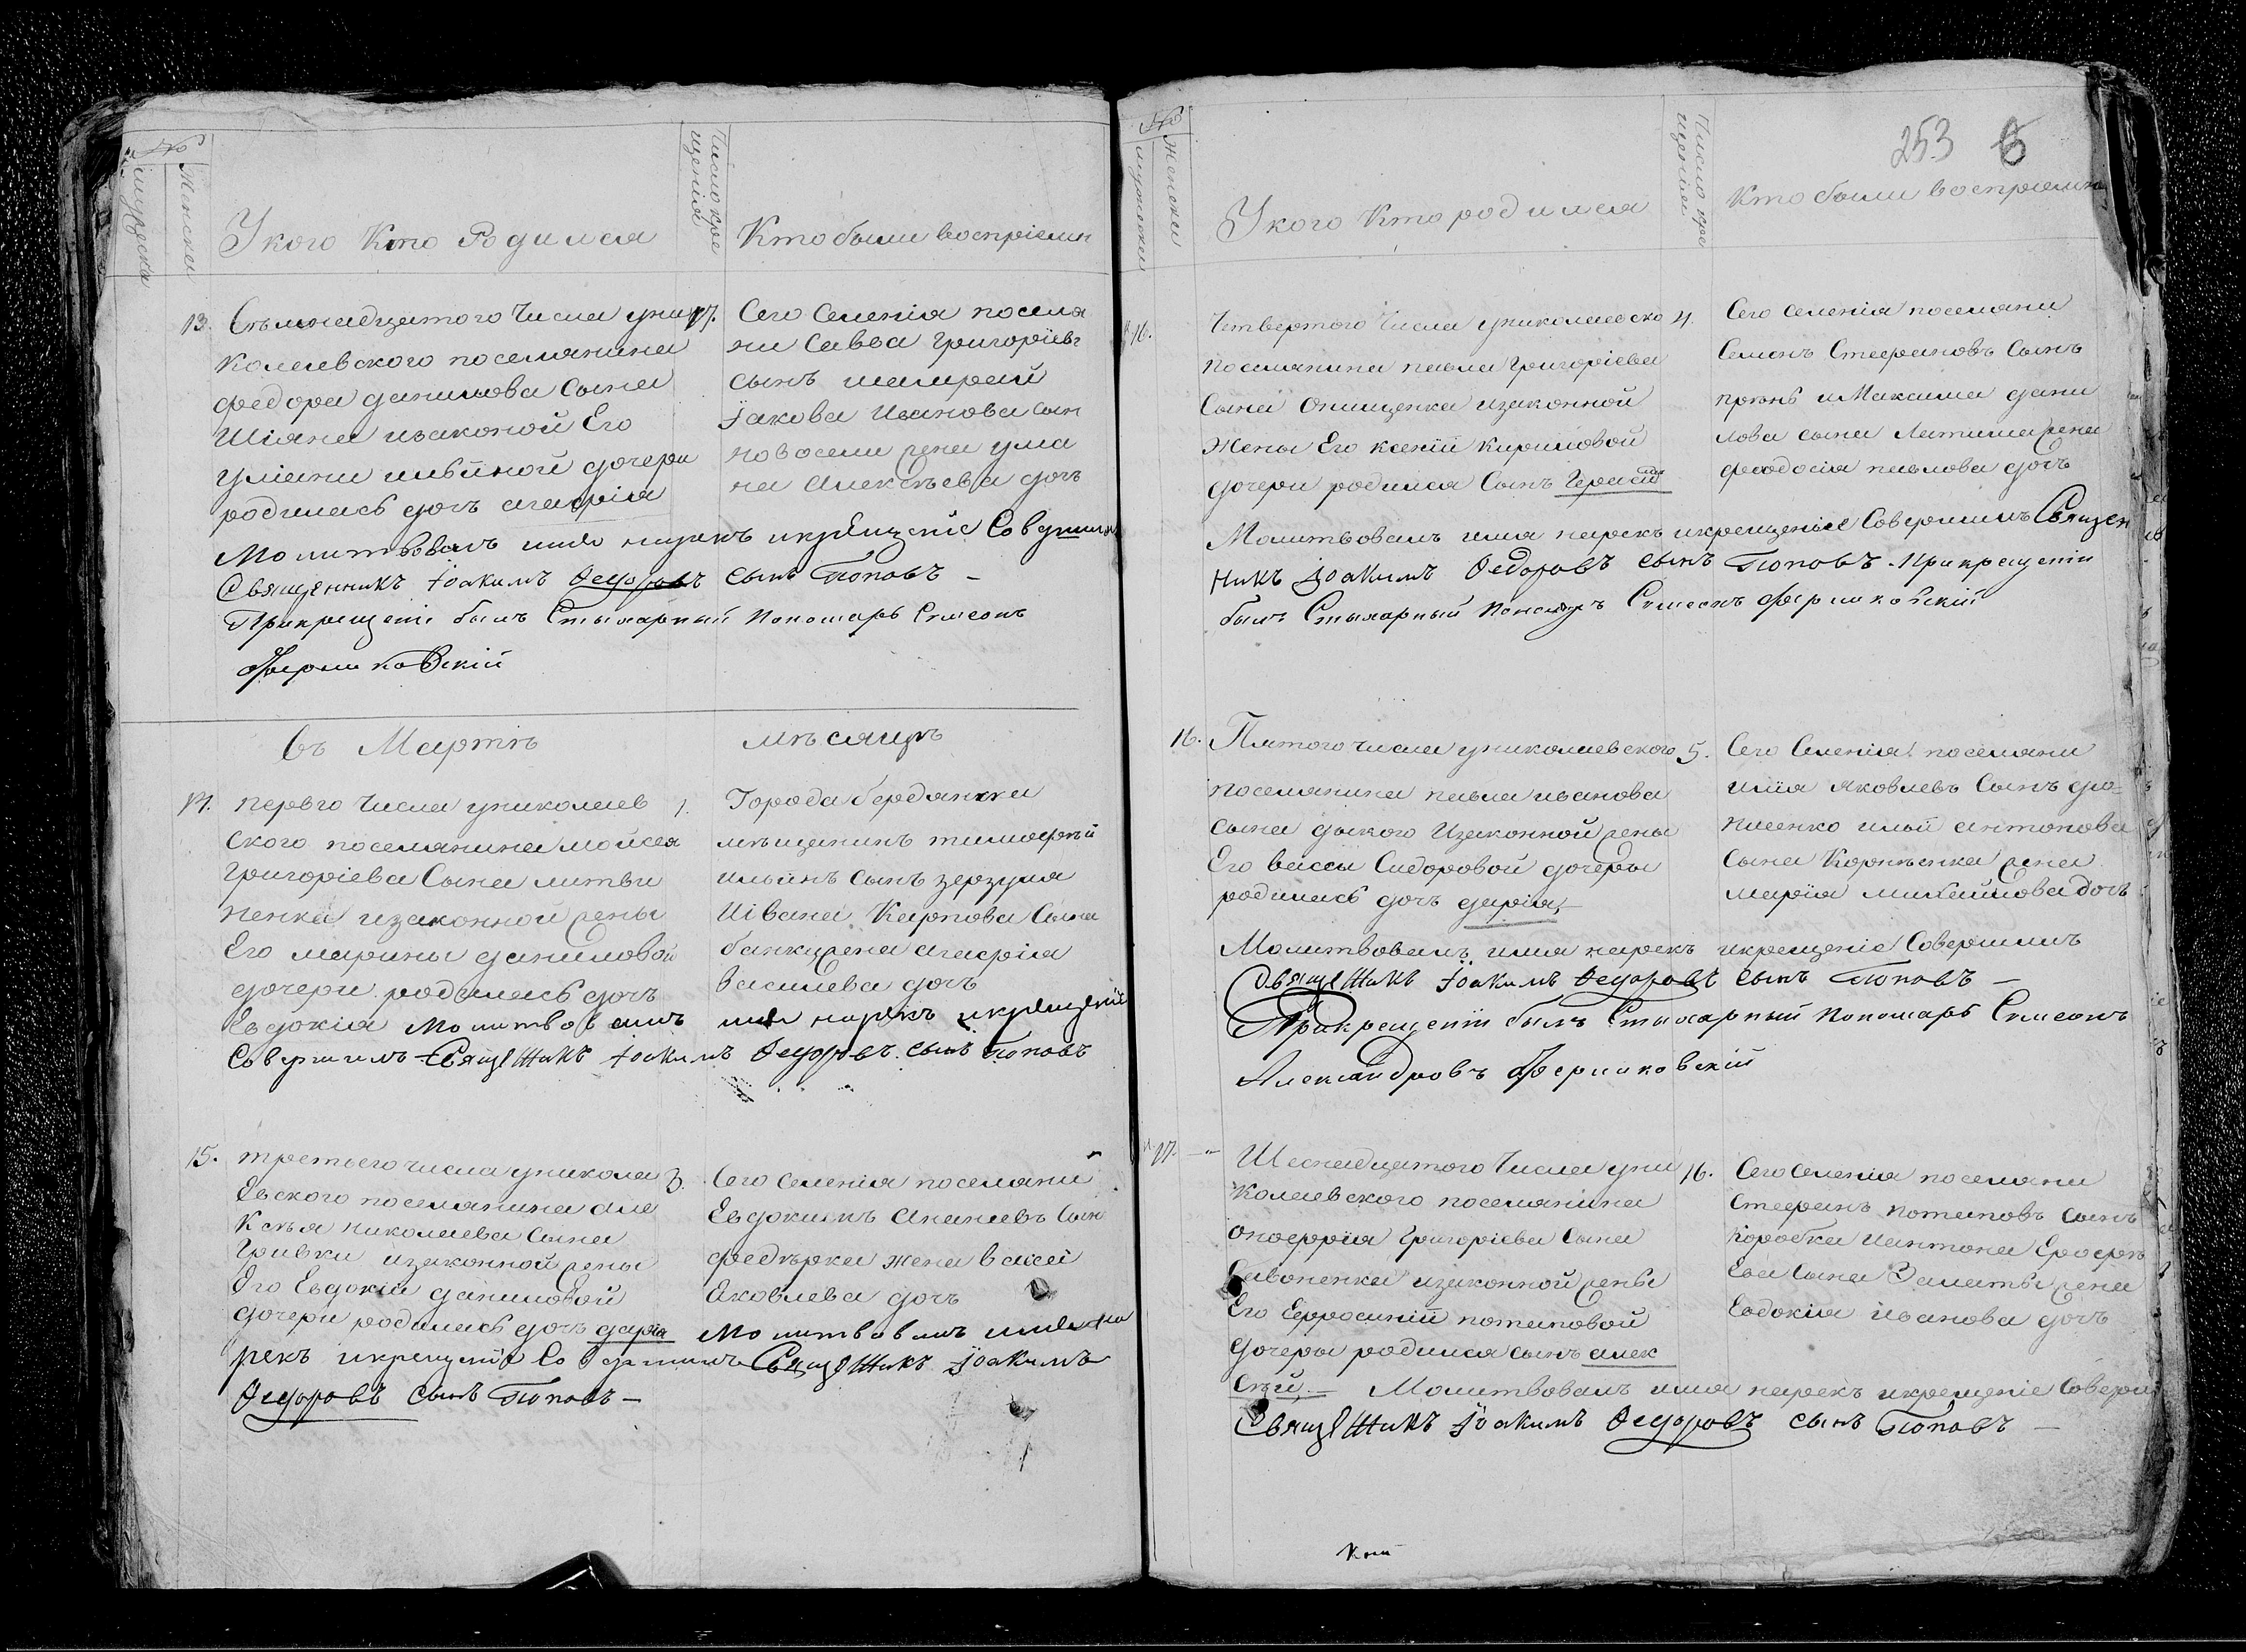 №
мужска
женска
У кого Кто Родился
Число кре
щенія
Кто были воспріемн
13.
Семьнадцатого Числа уни
колаевского поселянина
федора данилова Сына
Шіяна изаконой Его
уліани ильиной дочери
родилась дочь агафія
17.
Сего Селенія поселя
ни Савва Григоріевъ
сынъ
Іакова Иванова сын
новосели жена ули
на Алексѣева дочь
Молитвовалъ имя нарекъ икрещеніе Совершилъ
Священникъ Іоакимъ Федоровъ сынъ Поповъ –
При крещеніи былъ Стыхарный пономарь Симеонъ
Ферниковскій
въ Мартѣ мѣсяцѣ
14.
первго Числа униколаев
ского поселянина мойсея
Григоріева Сына литви
ненка изаконной жены
Его марины даниловой
дочери родилась дочь
Евдокія
1.
Города бердянска
мѣщанинъ тимофѣй
ильинъ сынъ
Иівана Карпова Сына
жена агафія
василева дочь
Молитвовалъ имя нарекъ икрещеніе
Совершилъ Священникъ Іоакимъ Федоровъ сынъ Поповъ
15.
третьего числа уникола
Евского поселянина але
Ксѣя николаева Сына
Гривки изаконной жены
Его Евдокіи даниловой
дочери родилась дочь дарія
3.
Сего Селенія поселяни
Евдокимъ Ананіевъ Сын
федѣрка жена васса
Яковлева дочь
Молитвовалъ имя на
рекъ икрещеніе Совершилъ Священникъ Іоакимъ
Федоровъ сынъ Поповъ –
253 6
№
мужски
женски
У кого Кто родился
Число кре
щенія
Кто были воспріемн
16.
Четвертого Числа униколаевско
поселянина павла григоріева
Сына Онищенка изаконной
Жены Его ксеніи кириловой
дочери родился Сынъ Герасим
4.
Сего селенія поселяни
Семенъ Стефановъ Сынъ
и Максима дани
лова сына жена
феодосія павлова дочь
Молитвовалъ имя нарекъ икрещеніе Совершилъ Священ
никъ Іоакимъ Федоровъ сынъ Поповъ. При крещеніи
былъ Стыхарный Пономарь Симеонъ Ферниковскій
16.
Пятого числа униколаевского
поселянина павла иванова
сына дыкого Изаконной жены
Его вассы Сидоровой дочеры
родилась дочь дарія,
5.
Сего Селенія поселяни
илія Яковлевъ Сынъ
ильи антонова
Сына Корнѣенка жена
марія михайлова дочь
Молитвовалъ имя нарекъ икрещеніе Совершилъ
Священникъ Іоакимъ Федоровъ сынъ Поповъ –
При крещеніи былъ Стыхарный пономарь Симеонъ
Александровъ Ферниковскій
17.
Шеснадцатого Числа уни
колаевского поселянина
оноффрія Григоріева Сына
Савоненка изаконной жены
Его Ефросиніи потаповой
дочеры родился сынъ алек
сѣй,
16.
Сего селенія поселяни
Стефанъ потаповъ Сынъ
Коробка Иантона Ерофѣ
Ева Сына Заматы жена
Евдокія іванова дочь
Молитвовалъ имя нарекъ икрещеніе Соверши
Священникъ Іоакимъ Федоровъ сынъ Поповъ –